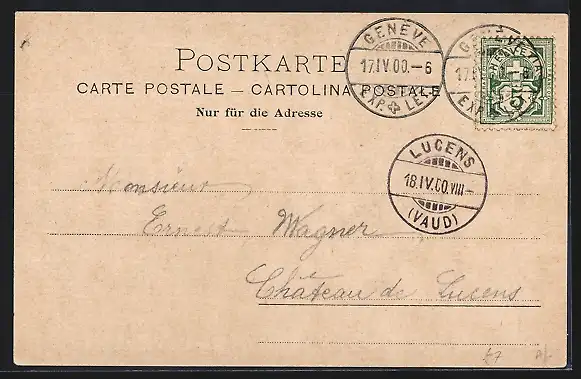 POSTKARTE
CARTE POSTALE — CARTOLINA POSTALE
Nur für die Adresse
GENÈVE
17.IV.00.–6
EXP. LET.
GENÈVE
17.IV
EXP.
HELVETIA
5
LUCENS
18.IV.00.VIII–
(VAUD)
Monsieur
Ernest Wagner
Château de Lucens